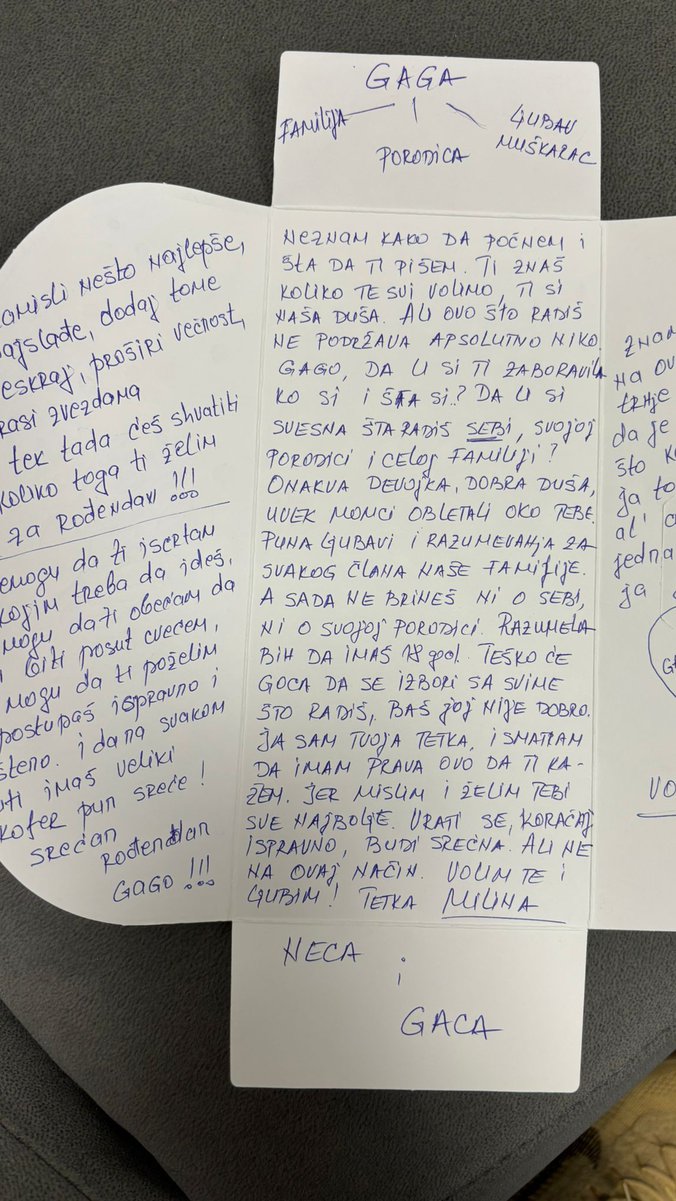 GAGA
FAMILIJA
LJUBAV
MUŠKARAC
PORODICA
nešto najlepše,
dodaj tome
proširi večnost,
zvezdama
tek tada ćeš shvatiti
koliko toga ti želim
za Rođendan !!!
da ti iscrtam
kojim treba da ideš,
mogu da ti obećam da
biti posut cvećem,
mogu da ti poželim
postupaš ispravno i
i da na svakom
imaš veliki
kofer pun sreće !
srećan
Rođendan
GAGO !!!
NEZNAM KAKO DA POČNEM I
ŠTA DA TI PIŠEM. TI ZNAŠ
KOLIKO TE SVI VOLIMO, TI SI
NAŠA DUŠA. ALI OVO ŠTO RADIŠ
NE PODRŽAVA APSOLUTNO NIKO.
GAGO, DA LI SI TI ZABORAVILA
KO SI I ŠTA SI? DA LI SI
SVESNA ŠTA RADIŠ SEBI, SVOJOJ
PORODICI I CELOJ FAMILIJI?
ONAKVA DEVOJKA, DOBRA DUŠA,
UVEK MOMCI OBLETALI OKO TEBE.
PUNA LJUBAVI I RAZUMEVANJA ZA
SVAKOG ČLANA NAŠE FAMILIJE.
A SADA NE BRINEŠ NI O SEBI,
NI O SVOJOJ PORODICI. RAZUMELA
BIH DA IMAŠ 18 god. TEŠKO ĆE
GOCA DA SE IZBORI SA SVIME
ŠTO RADIŠ, BAŠ JOJ NIJE DOBRO.
JA SAM TVOJA TETKA, I SMATRAM
DA IMAM PRAVA OVO DA TI KA-
ŽEM. JER MISLIM I ŽELIM TEBI
SVE NAJBOLJE. VRATI SE, KORAČAJ
ISPRAVNO, BUDI SREĆNA. ALI NE
NA OVAJ NAČIN. VOLIM TE I
LJUBIM! TETKA MILINA
NECA i
GACA
na
trnje
da je
što
ja to
al'
jedna
ja